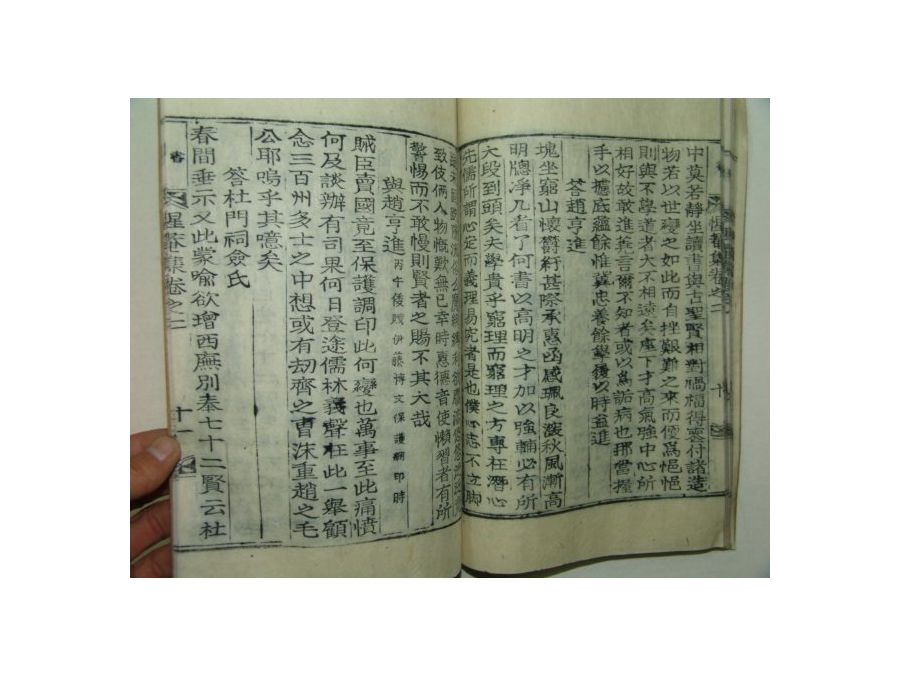 中莫若靜坐讀書與古聖賢相對禍福得喪付諸造
物若以世變之如此而自挫艱難之來而便爲悒悒
則與不學道者大不相遠矣座下才高氣強中心所
相好故敢進妄言爾不知者或以爲訕病也耶當握
手以攄底蘊餘惟冀忠養餘學後以時益進
答趙亨進
塊坐窮山懷鬱紆甚際承惠函感珮良深秋風漸高
明牕淨几看了何書以高明之才加以強輔必有所
大段到頭矣夫學貴乎窮理而窮理之方專在潛心
先儒所謂心定而義理易究者是也僕心志不立脚
致伎俩人物慨歎無已幸時惠德音使懶習者有所
警惕而不敢慢則賢者之賜不其大哉
與趙亨進 丙午倭賊伊藤博文保護調印時
賊臣賣國竟至保護調印此何變也萬事至此痛憤
何及談辦有司果何日登途儒林義聲在此一舉顧
念三百州多士之中想或有刼齊之曺沫重趙之毛
公耶嗚乎其噫矣
答杜門祠僉氏
春間垂示又此蒙喩欲增西廡別奉七十二賢云社
惺菴集卷之二
十
惺菴集卷之二
十一